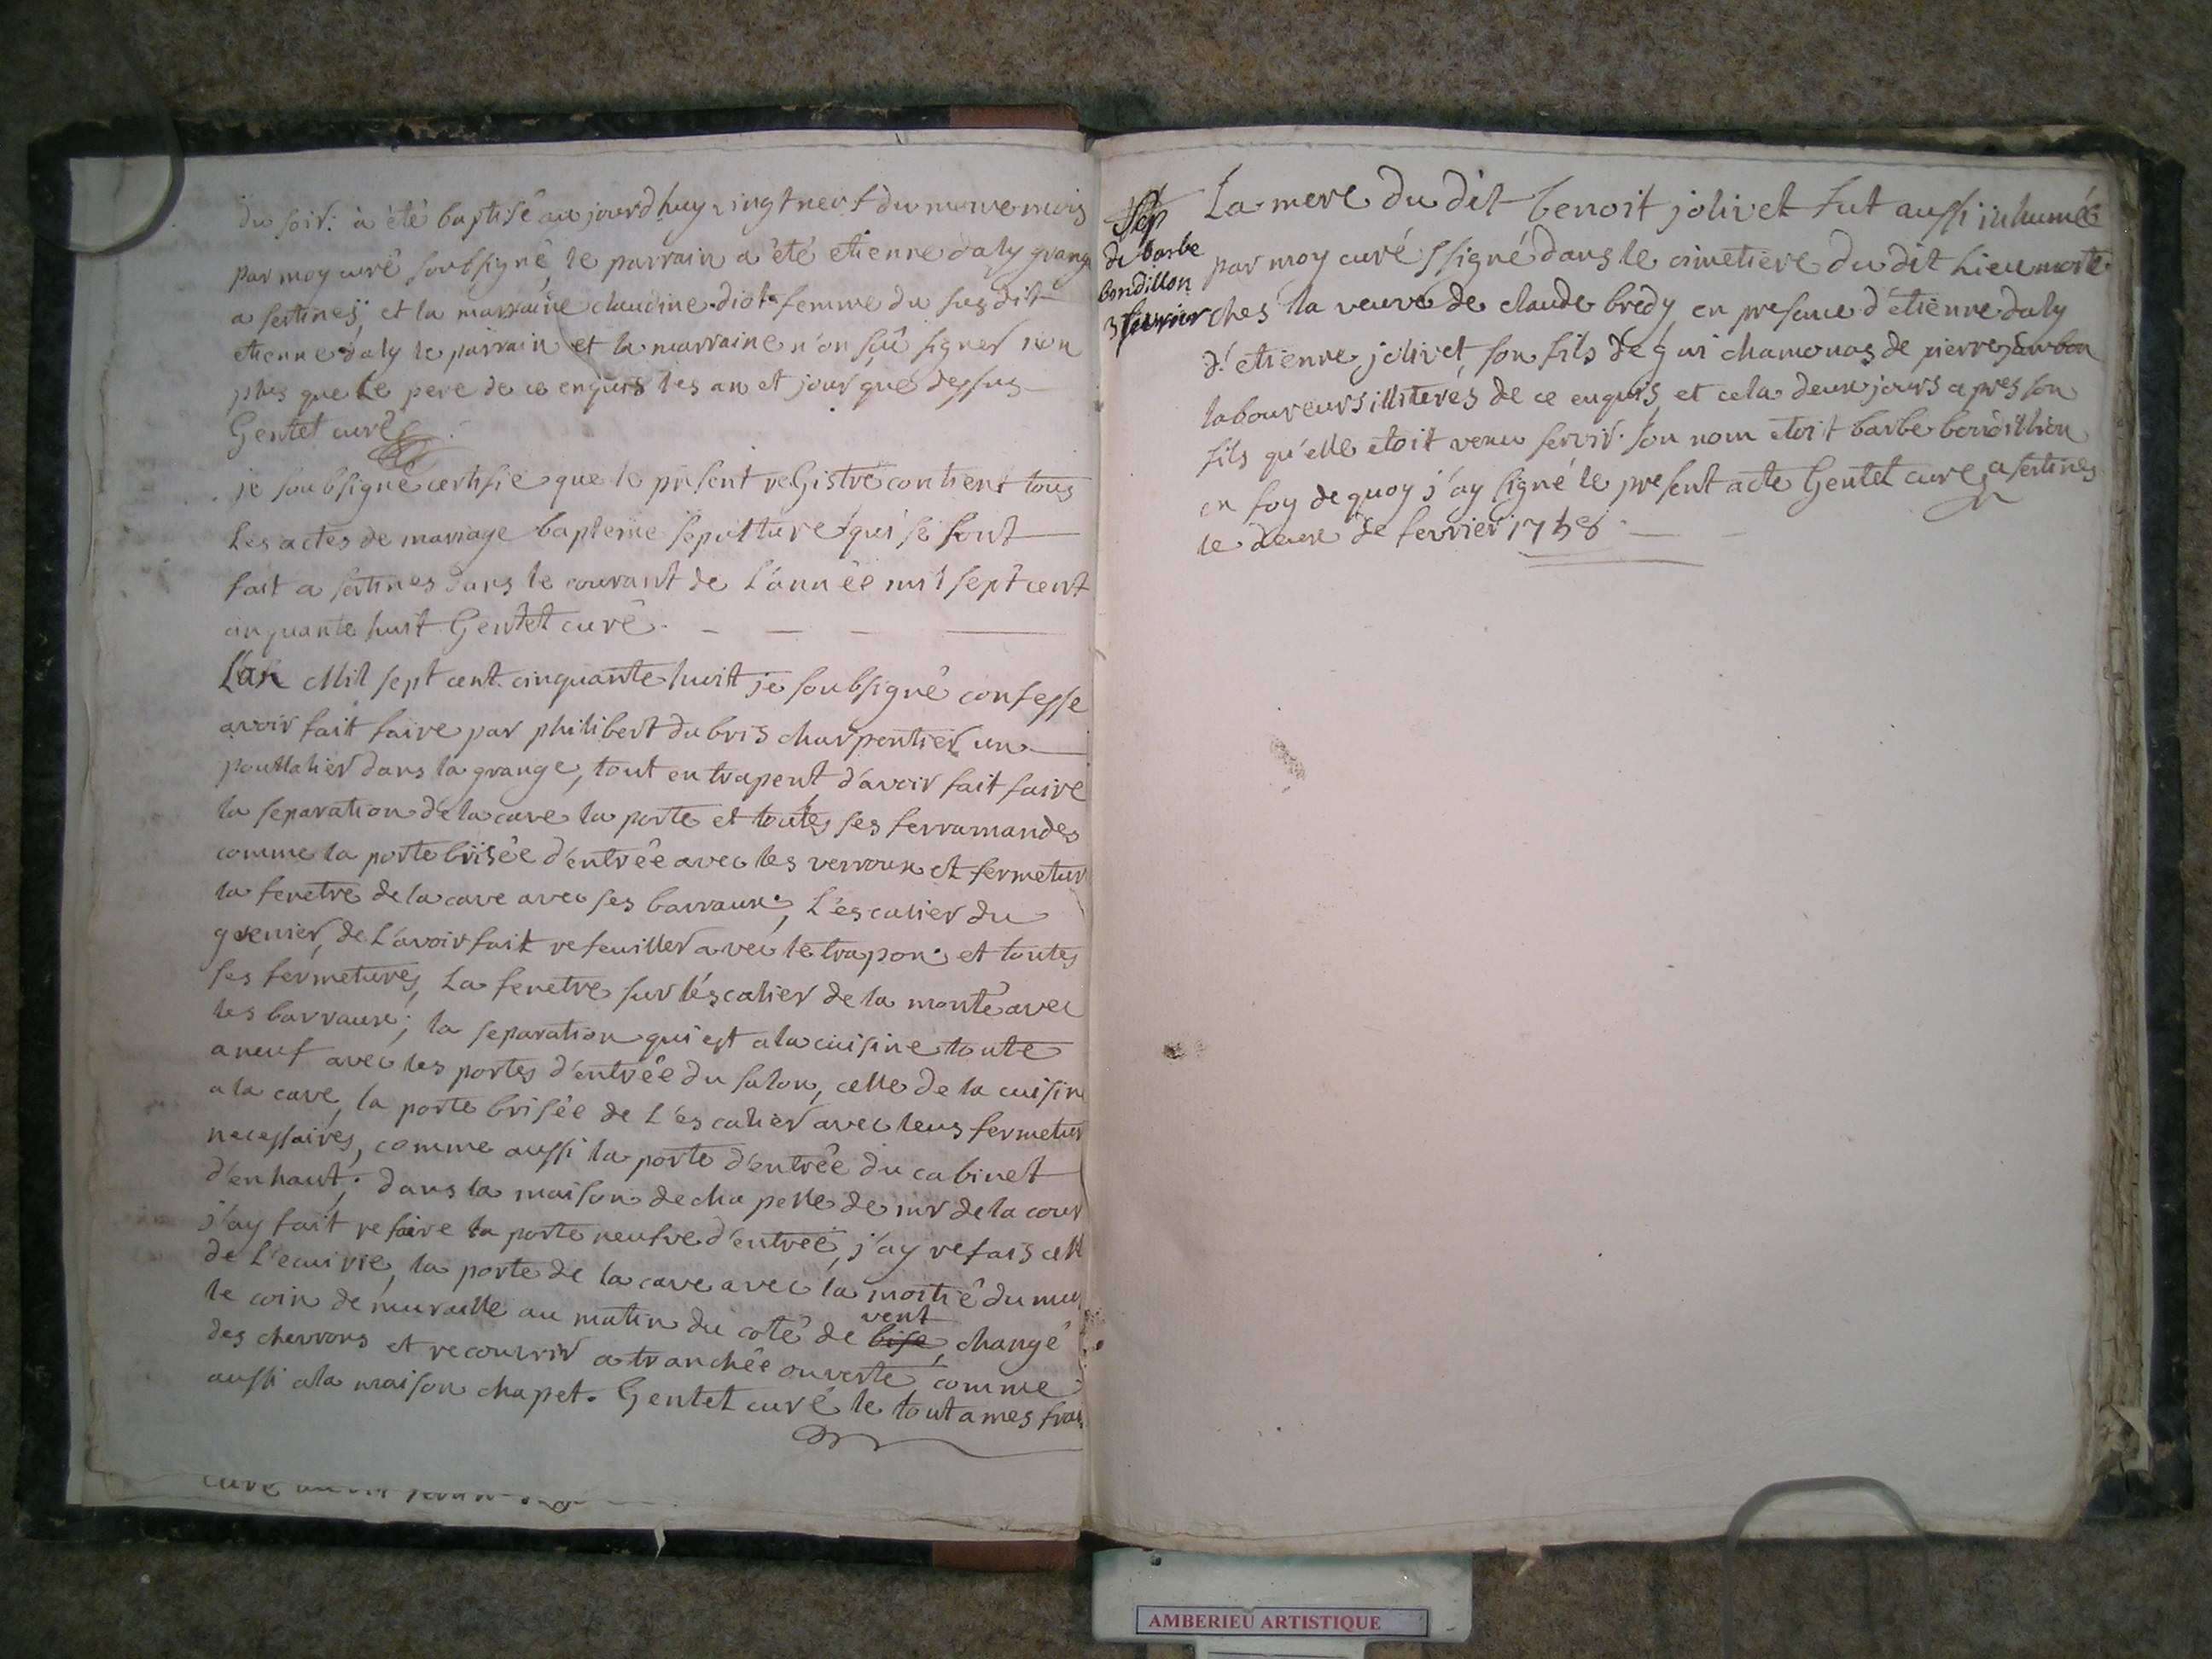 du soir. à été baptisé aujourdhuy vingt neuf du meme mois
par moy curé soubsigné, le parrain a été etienne daly grang
a sertines, et la marraine claudine diot femme du susdit
etienne daly le parrain et la marraine n'on sçû signer non
plus que le pere de ce enquis les an et jour que dessus
Gentet curé
je soubsigné certifie que le présent reGistre contient tous
Les actes de mariage baptême sepulture qui se sont
fait a sertines dans le courant de L'année mil sept cent
cinquante huit Gentet curé.
L'an Mil sept cent cinquante huit je soubsigné confesse
avoir fait faire par philibert dubris charpentier un
poullalier dans la grange, tout en trapent, d'avoir fait faire
la separation de la cave la porte et toutes ses ferramandes
comme la porte brisée d'entrée avec les verroux et fermetur
la fenetre de la cave avec ses barraux, L'escalier du
grenier, de L'avoir fait refeuiller avec le trapon et toutes
ses fermetures, La fenetre sur l'éscalier de la monté avec
les barraux; la separation qui est a la cuisine toute
a neuf avec les portes d'entrée du salon, celle de la cuisine
a la cave, la porte brisée de L'escalier avec leurs fermetur
necessaires, comme aussi la porte d'entrée du cabinet
d'enhaut; dans la maison de chapelle de la cour
j'ay fait refaire la porte neufve d'entrée, j'ay refais cell
de L'ecuirie, la porte de la cave avec la moitié du mur
le coin de muraille au matin du coté de bise vent, changé
des chevrons et recouvrir a tranchée ouverte, comme
aussi a la maison chapet. Gentet curé le tout a mes frai
curé
Sep
de barbe
bondillon
3 fevrier
La mere du dit benoit jolivet fut aussi inhumée
par moy curé ssigné dans le cimetiere du dit Lieu morte
ches la veuve de claude bredy en presence d'etienne daly
d'etienne jolivet, son fils de gui chamonas de pierre
laboureurs illiteres de ce enquis, et cela deux jours apres son
fils qu'elle etoit venu servir. son nom etoit barbe bondillion
en foy de quoy j'ay signé le present acte Gentet curé a sertines
le deux de fevrier 1758
AMBERIEU ARTISTIQUE